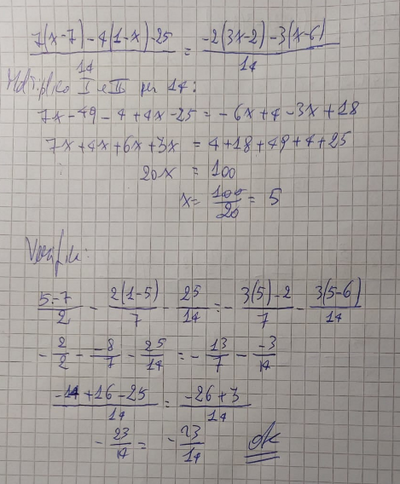 7(x-7)-4(1-x)-25/14 = -2(3x-2)-3(x-6)/14
Moltiplico I e II per 14:
7x-49-4+4x-25=-6x+4-3x+18
7x+4x+6x+3x = 4+18+49+4+25
20x = 100
x= 100/20 = 5
Verifica:
5-7/2 - 2(1-5)/7 - 25/14 = - 3(5)-2/7 - 3(5-6)/14
- 2/2 - -8/7 - 25/14 = - 13/7 - -3/14
-14+16-25/14 = -26+3/14
- 23/14 = - 23/14 ok